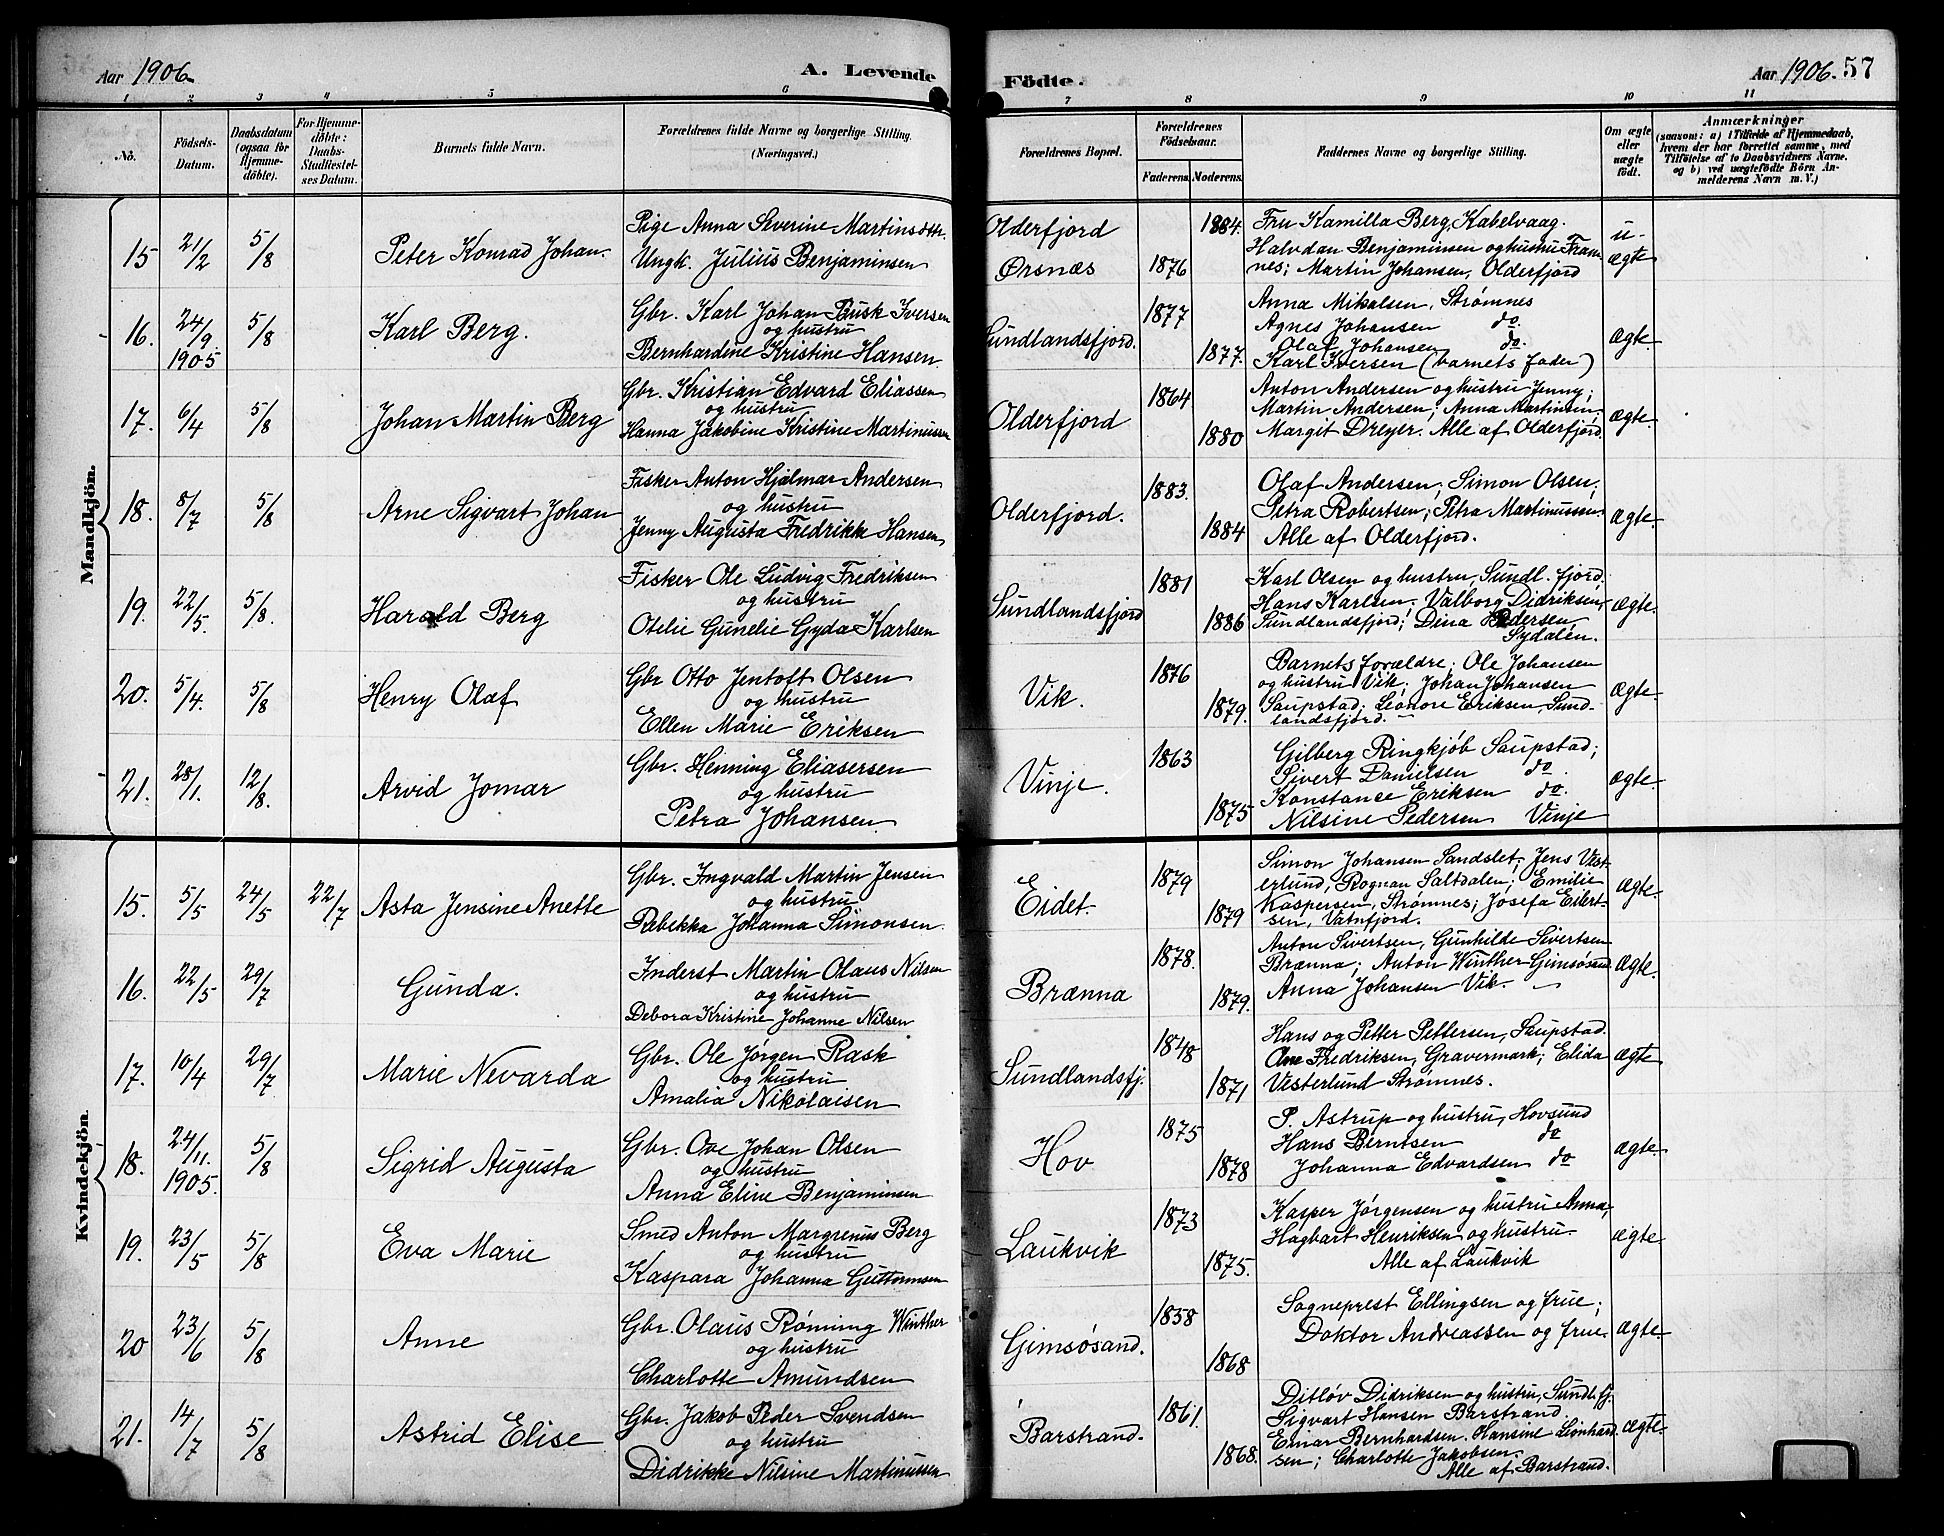 Aar 1906.
A. Levende
Födte.
Aar 1906. 57
1 2 3 4 5 6 7 8 9 10 11
No.
Födsels-
Datum.
Daabsdatum
(ogsaa for
Hjemme-
döbte).
For Hjemme-
döbte:
Daabs-
Stadfæstel-
ses Datum.
Barnets fulde Navn.
Forældrenes fulde Navne og borgerlige Stilling.
(Næringsvei.)
Forældrenes Bopæl.
Forældrenes
Födselsaar.
Faderens. Moderens.
Faddernes Navne og borgerlige Stilling.
Om ægte
eller
uægte
födt.
Anmærkninger
(saasom: a) i Tilfælde af Hjemmedaab,
hvem der har forrettet samme, med
Tilföielse af to Daabsvidners Navne.
og b) ved uægtefödte Börn An-
melderens Navn m. V.)
Mandkjön.
15 21/2 5/8 Peter Konrad Johan.
Pige Anna Severine Martinsdtr.
Ungk. Julius Benjaminsen
Olderfjord
Ørsnæs
1876 1884.
Fru Kamilla Berg, Kabelvaag.
Halvdan Benjaminsen og hustru Fram-
nes; Martin Johansen, Olderfjord
u-
ægte
16. 24/9 1905 5/8 Karl Berg.
Gbr. Karl Johan Busk Iversen
og hustru
Bernhardine Kristine Hansen.
Sundlandsfjord.
1877 1877.
Anna Mikalsen, Strømnes
Agnes Johansen do.
Olaf Johansen do.
Karl Iversen (barnets fader)
ægte
17. 6/4 5/8 Johan Martin Berg
Gbr. Kristian Edvard Eliassen
og hustru
Hanna Jakobine Kristine Martinussen
Olderfjord
1864 1880
Anton Andersen og hustru Jenny;
Martin Andersen; Anna Martinsen;
Margit Dreyer. Alle af Olderfjord.
ægte.
18. 8/7 5/8 Arne Sigvart Johan
Fisker Anton Hjalmar Andersen
og hustru
Jenny Augusta Fredrikke Hansen
Olderfjord.
1883. 1884
Olaf Andersen; Simon Olsen;
Petra Robertsen; Petra Martinussen.
Alle af Olderfjord.
ægte.
19. 22/5. 5/8. Harald Berg
Fisker Ole Ludvig Fredriksen
og hustru
Otelie Gunelie Gyda Karlsen
Sundlandsfjord
1881 1886
Karl Olsen og hustru, Sundl. fjord.
Hans Karlsen. Valborg Didriksen,
Sundlandsfjord; Dina Pedersen
Sydalen.
ægte.
20. 5/4. 5/8 Henry Olaf
Gbr Otto Jentoft Olsen
og hustru
Ellen Marie Eriksen
Vik.
1876 1879.
Barnets forældre; Ole Johansen
og hustru Vik; Johan Johansen
Saupstad; Leonore Eriksen, Sund-
landsfjord.
ægte.
21. 28/1. 12/8. Arvid Jomar
Gbr. Henning Eliasersen
og hustru
Petra Johansen.
Vinje.
1863 1875
Gilberg Ringkjøb Saupstad;
Sivert Danielsen do.
Konstance Eriksen do.
Nilsine Pedersen Vinje
ægte.
Kvindekjön.
15. 5/5 24/5 22/7 Asta Jensine Anette
Gbr. Ingvald Martin Jensen
og hustru
Rebekka Johanna Simonsen.
Eidet.
1879 1879
Simon Johansen Sandslet; Jens Vest-
erlund, Rognan Saltdalen; Emilie
Kaspersen, Strømnes; Josefa Eilert-
sen, Vatnfjord.
ægte.
16. 22/5 29/7 Gunda.
Inderst Martin Olaus Nilsen
og hustru
Debora Kristine Johanne Nilsen
Brænna
1878. 1879.
Anton Sivertsen, Gunhilde Sivertsen
Brænna; Anton Winther Gimsøsand
Anna Johansen Vik.
ægte.
17. 10/4 29/7 Marie Nevarda
Gbr. Ole Jørgen Rask
og hustru
Amalia Nikolaisen
Sundlandsfj.
1848 1871
Hans og Petter Pettersen, Saupstad.
Ane Fredriksen, Gravermark; Elida
Vesterlund Strømnes.
ægte
18. 24/11. 1905. 5/8 Sigrid Augusta
Gbr. Ove Johan Olsen
og hustru
Anna Eline Benjaminsen
Hov
1875 1878
P. Astrup og hustru, Hovsund
Hans Berntsen do
Johanna Edvardsen do
ægte.
19. 23/5 5/8 Eva Marie
Smed Anton Margrenus Berg
og hustru
Kaspara Johanna Guttormsen
Laukvik
1873 1875.
Kasper Jørgensen og hustru Anna;
Hagbart Henriksen og hustru.
Alle af Laukvik
ægte
20 23/6 5/8 Anne
Gbr. Olaus Røming Winther
og hustru
Charlotte Amundsen
Gimsøsand.
1858 1868
Sogneprest Ellingsen og frue;
Doktor Andreassen og frue.
ægte
21. 14/7 5/8 Astrid Elise
Gbr. Jakob Peder Svendsen
og hustru
Didrikke Nilsine Martinussen
Barstrand.
1861. 1868.
Ditløv Didriksen og hustru, Sundl.fj.
Sigvart Hansen Barstrand
Einar Bernhardsen. Hansine Leonhard-
sen; Charlotte Jakobsen.
Alle af Barstrand.
ægte.